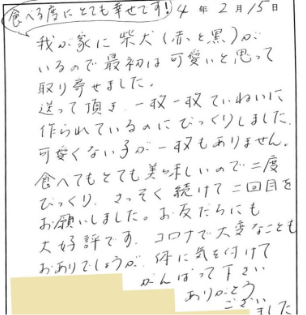 食べる度にとても幸せです!
4年2月15日
我が家に柴犬(赤と黒)が
いるので最初は可愛いと思って
取り寄せました。
送って頂き、一枚一枚ていねいに
作られているのにびっくりしました。
可愛くない子が一枚もありません。
食べてもとても美味しいので二度
びっくり、さっそく続けて二回目を
お願いしました。お友だちにも
大好評です。コロナで大変なことも
おありでしょうが、体に気を付けて
がんばって下さい
ありがとう
ござい
ました